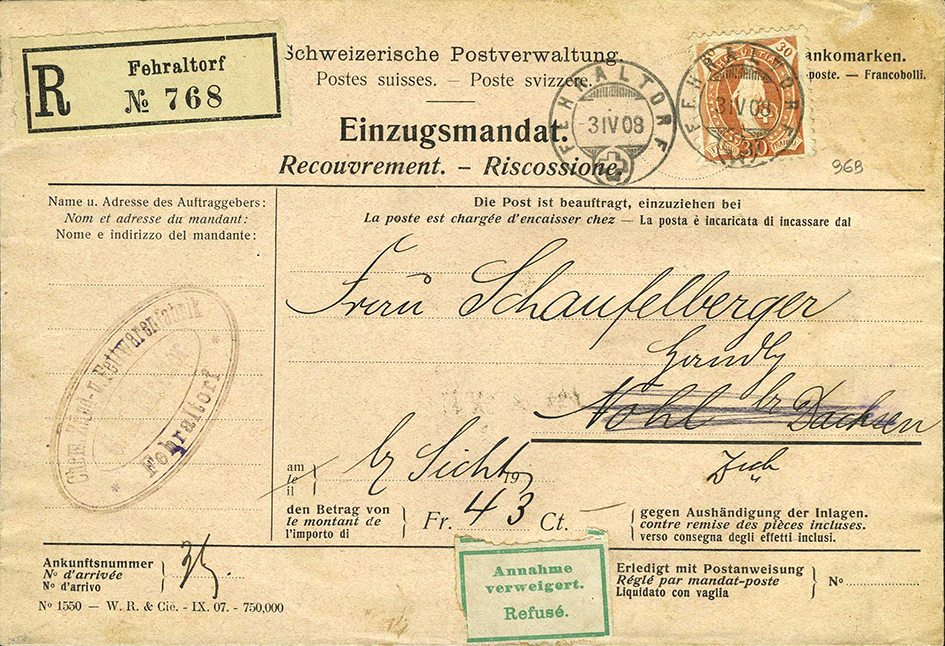 R
Fehraltorf
No 768
Schweizerische Postverwaltung.
Postes suisses. — Poste svizzere.
ankomarken.
poste. — Francobolli.
Einzugsmandat.
Recouvrement. – Riscossione.
FEHRALTORF
-3IV08
30
FEHRALTORF
-3IV08
30
96B
Name u. Adresse des Auftraggebers:
Nom et adresse du mandant:
Nome e indirizzo del mandante:
Die Post ist beauftragt, einzuziehen bei
La poste est chargée d'encaisser chez — La posta è incaricata di incassare dal
Frau Schaufelberger
Handlg
Nohl by Dachsen
Zürich
Fettwarenfabrik
Fehraltorf
am
le
il
by Sicht 19
den Betrag von
le montant de
l'importo di
Fr. 43 Ct. —
gegen Aushändigung der Inlagen.
contre remise des pièces incluses.
verso consegna degli effetti inclusi.
Ankunftsnummer
No d'arrivée
No d'arrivo
35
Annahme
verweigert.
Refusé.
Erledigt mit Postanweisung
Réglé par mandat-poste
Liquidato con vaglia
No
No 1550 — W. R. & Cie. - IX. 07. - 750,000